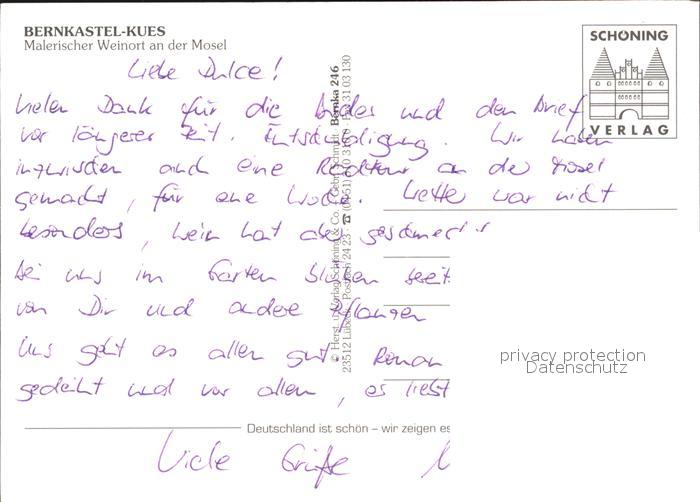 BERNKASTEL-KUES
Malerischer Weinort an der Mosel
SCHÖNING
VERLAG
Liebe Dulce!
Vielen Dank für die und den Brief
vor längerer Zeit. Entschuldigung. Wir haben
inzwischen auch eine Radtour an der Mosel
gemacht, für eine Woche. Wetter war nicht
besonders, Wein hat aber geschmeckt
Bei uns im Garten blühen bereit
von Dir und andere Pflanzen
Uns geht es allen gut. Roman
gedeiht und vor allem, es liest
Viele Grüße
Deutschland ist schön – wir zeigen es
© Herst. u. Verlag Schöning & Co. + Gebr. Schmidt
23512 Lübeck, Postfach 24 23
Bernka 246
privacy protection
Datenschutz